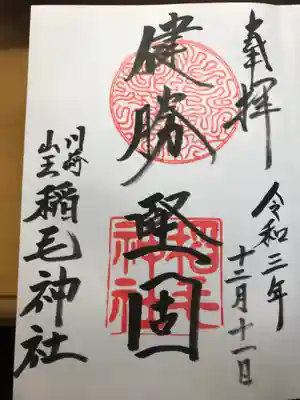 奉拝
令和三年
十二月十一日
健勝堅固
稲毛神社
川崎
山王
稲毛神社